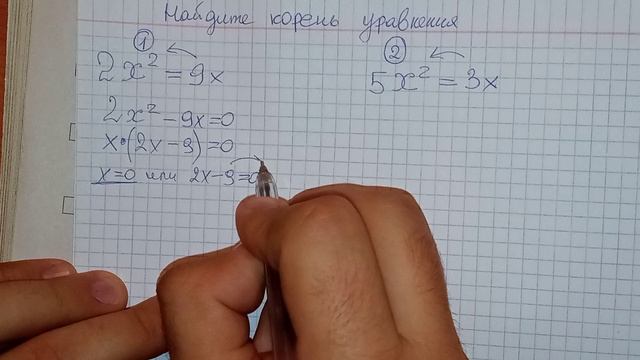 Найдите корень уравнения
1
2x² = 9x
2x² - 9x = 0
x·(2x - 9) = 0
x = 0 или 2x - 9 = 0
2
5x² = 3x